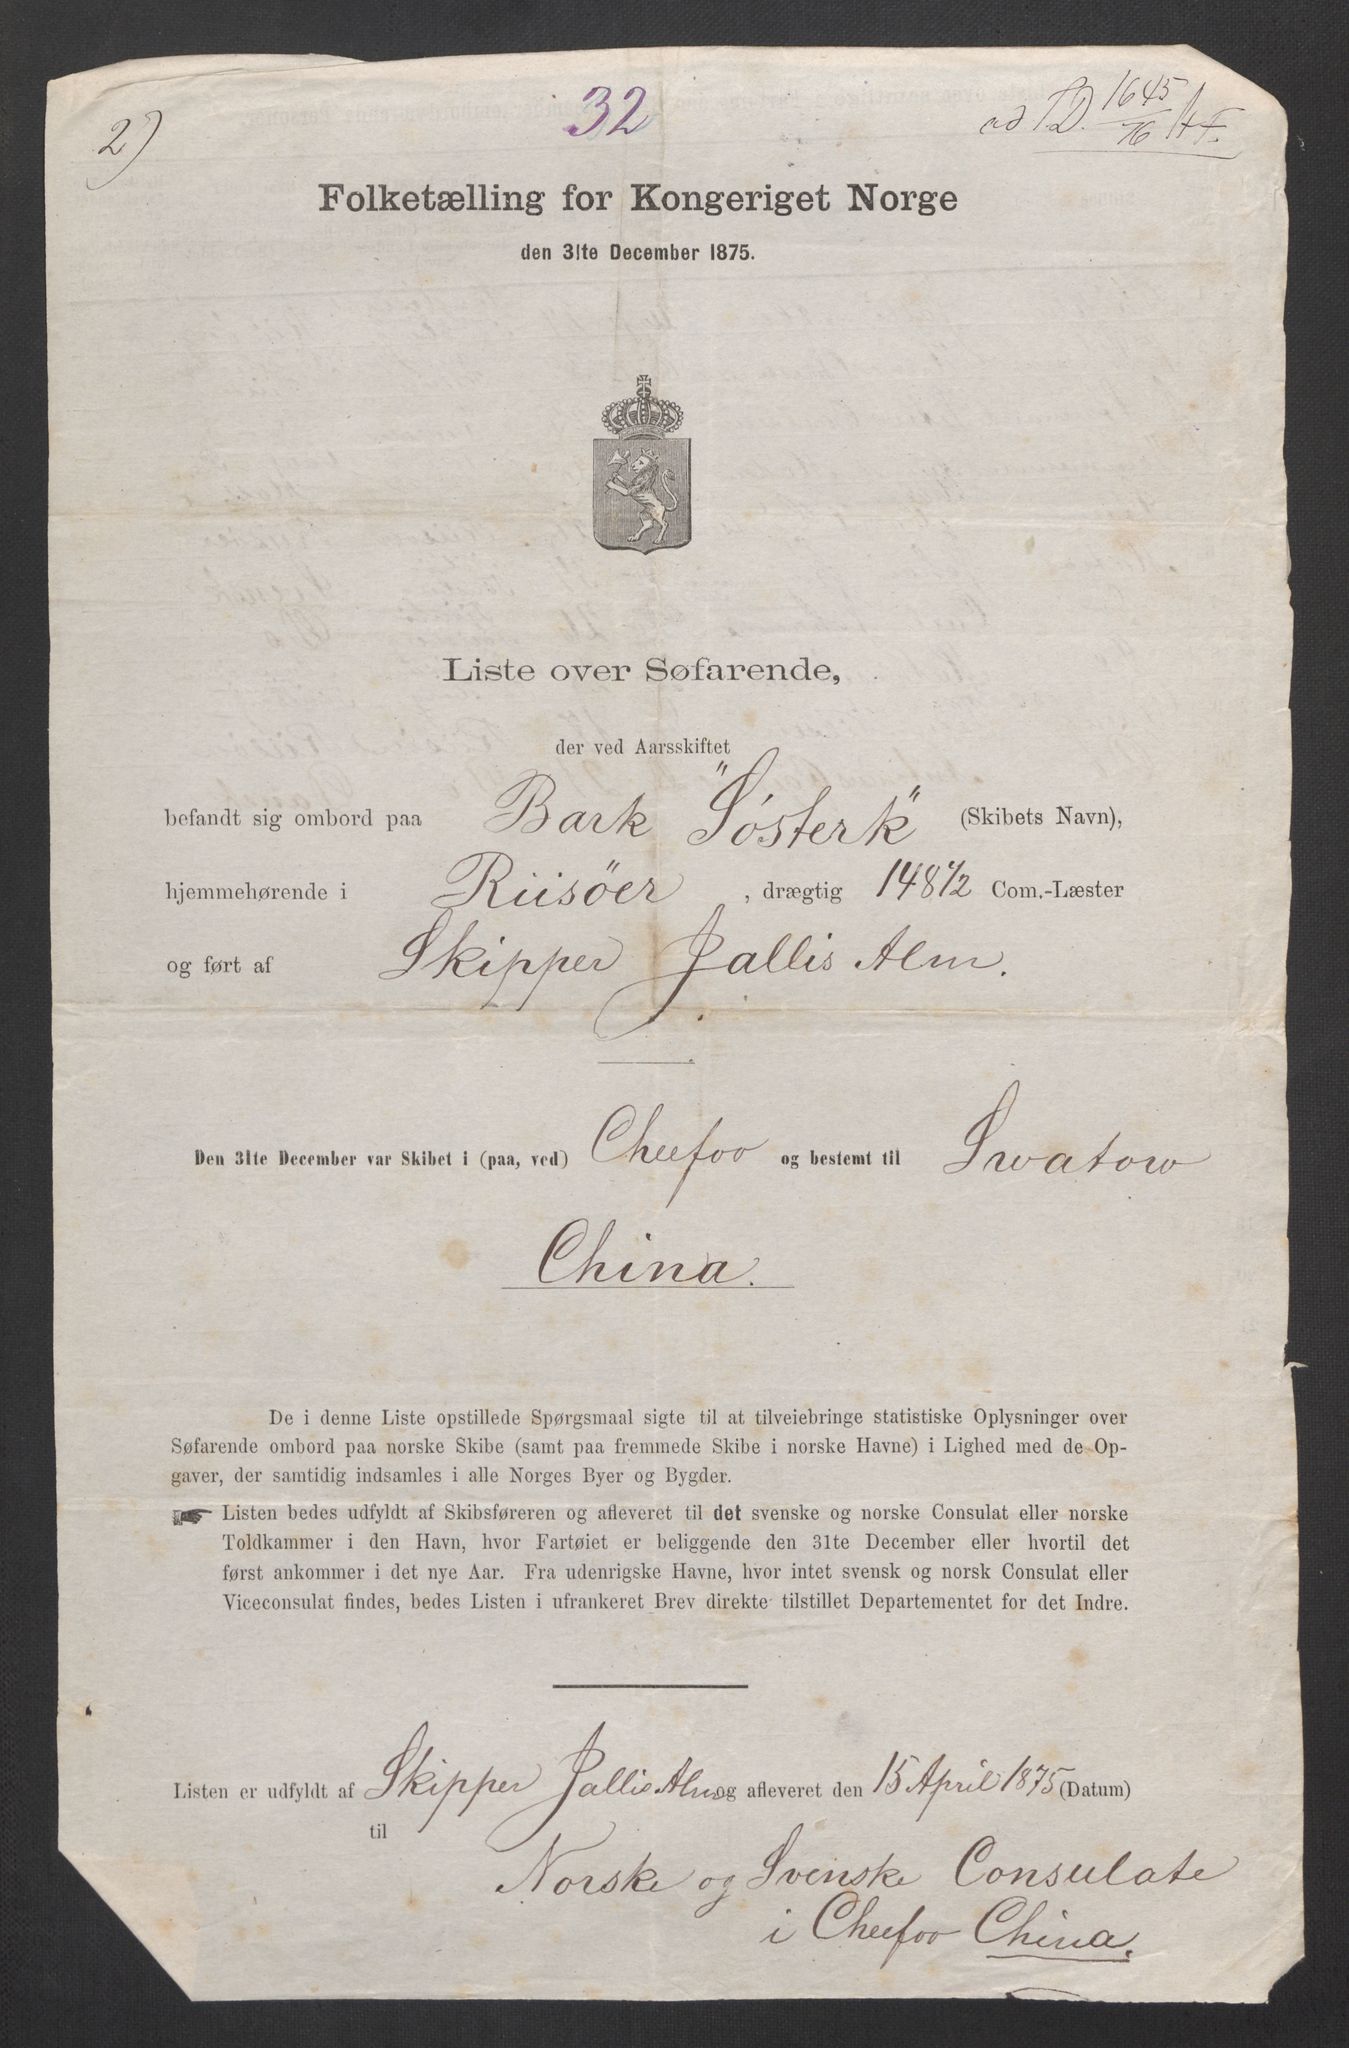 2)
32
ad TD. 1645/76 A F.
Folketælling for Kongeriget Norge
den 31te December 1875.
Liste over Søfarende,
der ved Aarsskiftet
befandt sig ombord paa Bark "Sósterk" (Skibets Navn),
hjemmehørende i Riisöer, drægtig 148 1/2 Com.-Læster
og ført af Skipper Jallis Alm.
Den 31te December var Skibet i (paa, ved) Cheefoo og bestemt til Swatow
China.
De i denne Liste opstillede Spørgsmaal sigte til at tilveiebringe statistiske Oplysninger over
Søfarende ombord paa norske Skibe (samt paa fremmede Skibe i norske Havne) i Lighed med de Op-
gaver, der samtidig indsamles i alle Norges Byer og Bygder.
☛ Listen bedes udfyldt af Skibsføreren og afleveret til det svenske og norske Consulat eller norske
Toldkammer i den Havn, hvor Fartøiet er beliggende den 31te December eller hvortil det
først ankommer i det nye Aar. Fra udenrigske Havne, hvor intet svensk og norsk Consulat eller
Viceconsulat findes, bedes Listen i ufrankeret Brev direkte tilstillet Departementet for det Indre.
Listen er udfyldt af Skipper Jallis Alm og afleveret den 15 April 1875 (Datum)
til
Norske og Svenske Consulate
i Cheefoo China.